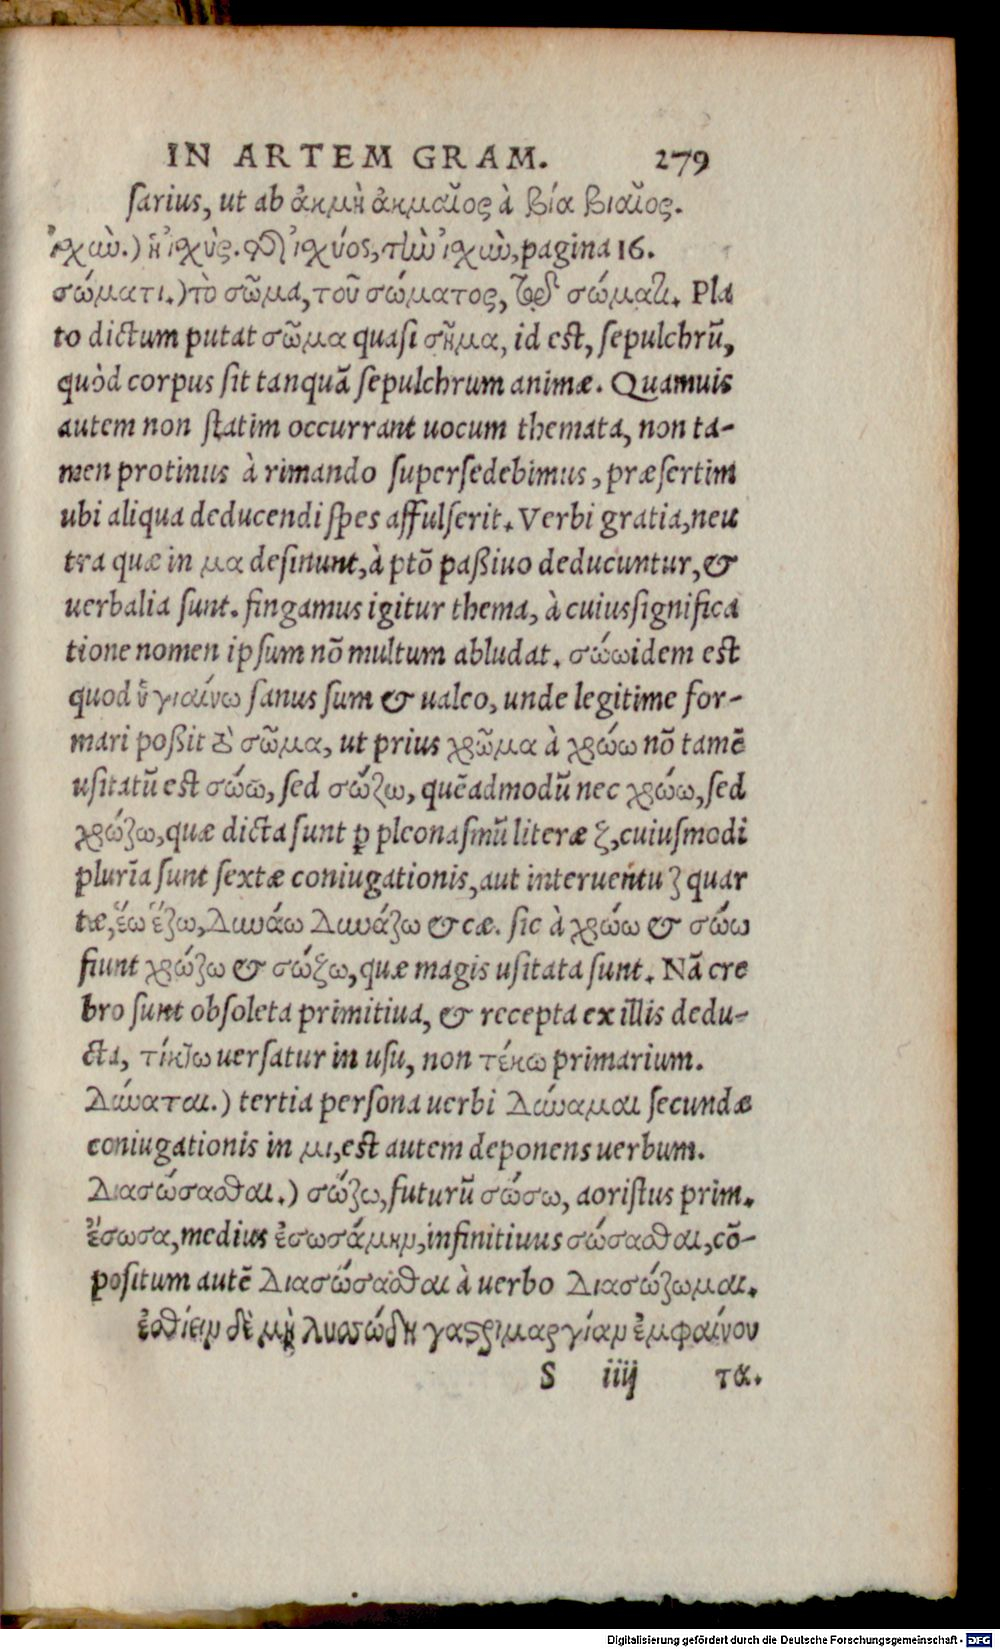 IN ARTEM GRAM. 279
sarius, ut ab ἀκμὴ ἀκμαῖος à βία βιαῖος.
ἰσχὺν.) ἡ ἰσχὺς. τῆς ἰσχύος, τὴν ἰσχὺν, pagina 16.
σώματι.) τὸ σῶμα, τοῦ σώματος, τῷ σώματι. Pla
to dictum putat σῶμα quasi σῆμα, id est, sepulchrũ,
quòd corpus sit tanquã sepulchrum animæ. Quamuis
autem non statim occurrant uocum themata, non ta-
men protinus à rimando supersedebimus, præsertim
ubi aliqua deducendi spes affulserit. Verbi gratia, neu
tra quæ in μα desinunt, à ptõ paßiuo deducuntur, &
uerbalia sunt. fingamus igitur thema, à cuius significa
tione nomen ipsum nõ multum abludat. σώω idem est
quod ὑγιαίνω sanus sum & ualeo, unde legitime for-
mari poßit τὸ σῶμα, ut prius χρῶμα à χρώω nõ tamẽ
usitatũ est σώω, sed σώζω, quẽadmodũ nec χρώω, sed
χρώζω, quæ dicta sunt ꝑ pleonasmũ literæ ζ, cuiusmodi
plurĩa sunt sextæ coniugationis, aut interuentu ζ quar
tæ, ἕω ἕζω, δαμάω δαμάζω & cæ. sic à χρώω & σώω
fiunt χρώζω & σώζω, quæ magis usitata sunt. Nã cre
bro sunt obsoleta primitiua, & recepta ex illis dedu-
cta, τίκτω uersatur in usu, non τέκω primarium.
Δύναται.) tertia persona uerbi Δύναμαι secundæ
coniugationis in μι, est autem deponens uerbum.
Διασώσασθαι.) σώζω, futurũ σώσω, aoristus prim.
ἔσωσα, medius ἐσωσάμην, infinitiuus σώσασθαι, cõ-
positum autẽ Διασώσασθαι à uerbo Διασώζομαι.
ἐσθίειν δὲ μὴ λυσσώδη γαστριμαργίαν ἐμφαίνον
S iiij τα.
Digitalisierung gefördert durch die Deutsche Forschungsgemeinschaft - DFG